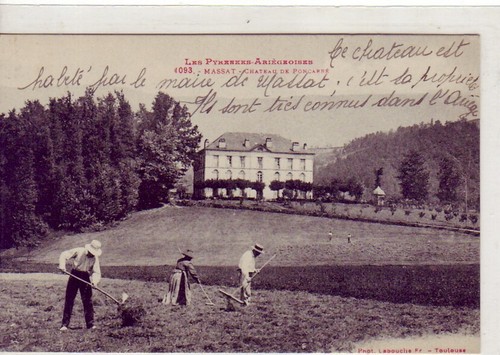 Les Pyrénées-Ariégeoises
4093. - MASSAT - CHATEAU DE PONCARRÉ
Ce chateau est
habité par le maire de Massat. c'est la propriété
Ils sont très connus dans l'
Phot. Labouche Fr. - Toulouse